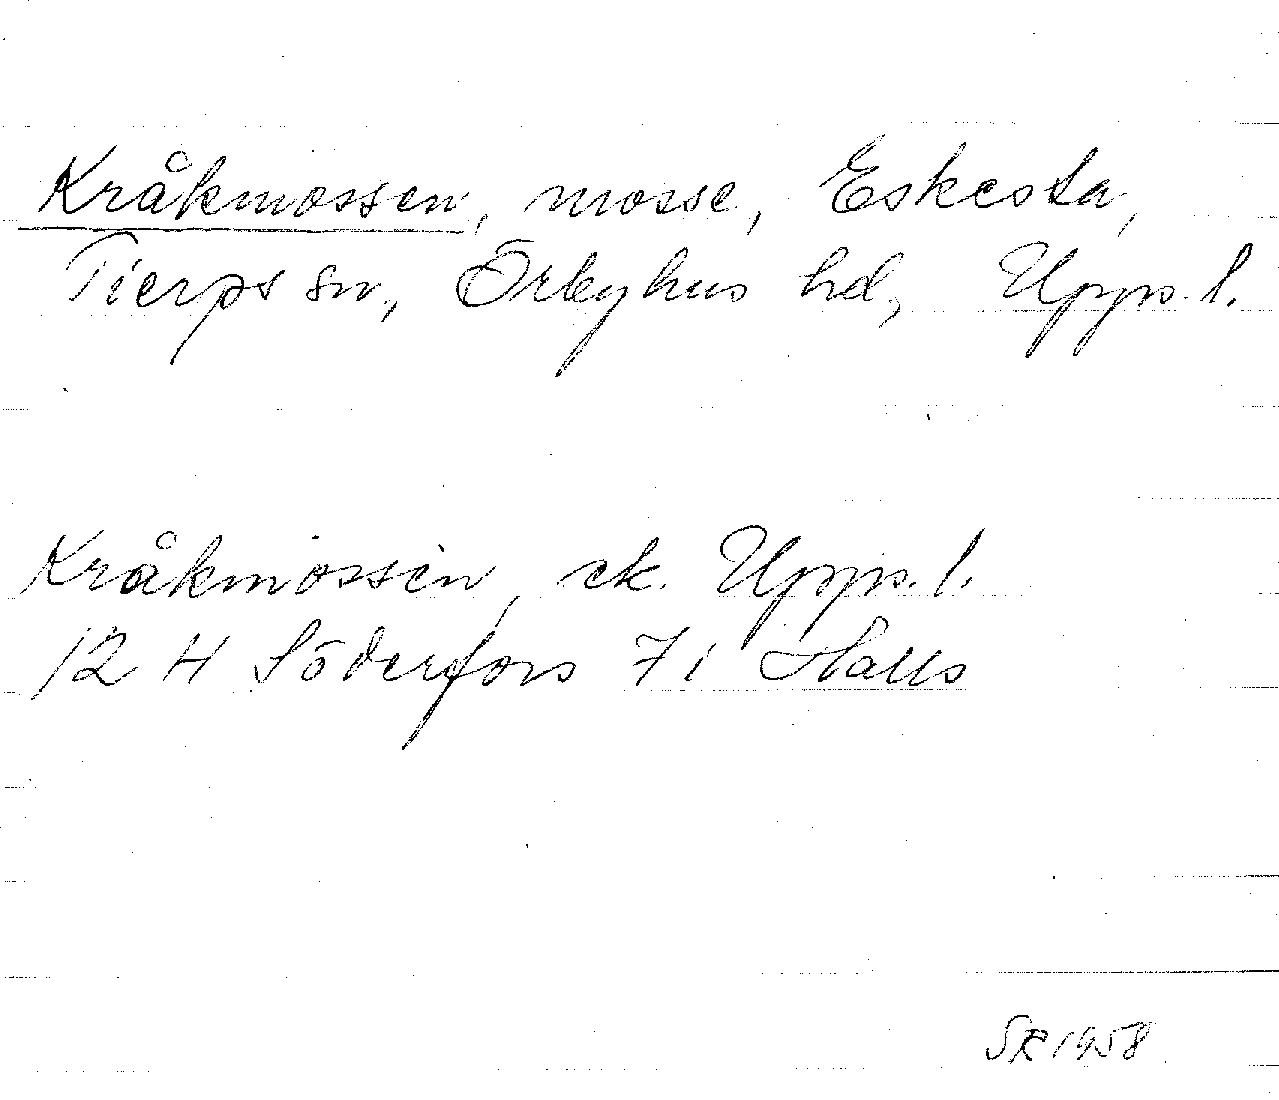 Kråkmossen, mosse, Eskesta,
Tierps sn, Örbyhus hd, Upps. l.
Kråkmossen, ek. Upps. l.
12 H Söderfors 7i Halls
SR 1958